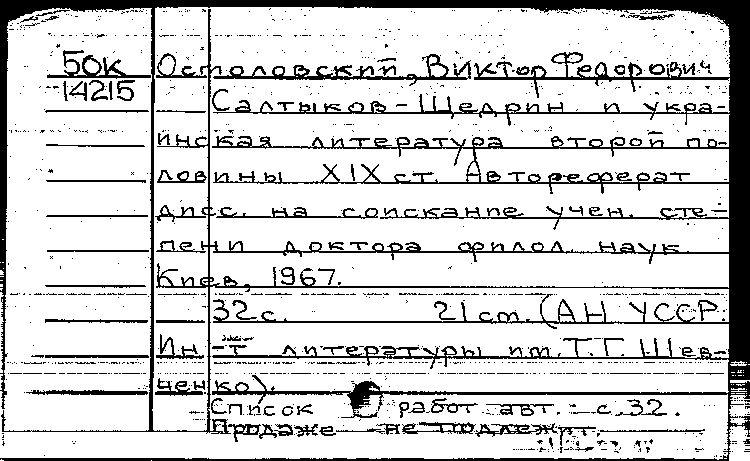 50К Остоловский, Виктор Федорович
14215 Салтыков-Щедрин и укра-
инская литература второй по-
ловины XIX ст. Автореферат
дисс. на соискание учен. сте-
пени доктора филол наук
Киев, 1967.
32 с. 21 cm. (АН УССР.
Ин-т литературы им. Т.Г. Шев-
ченко).
Список работ авт.: с. 32.
Продаже не подлежит.